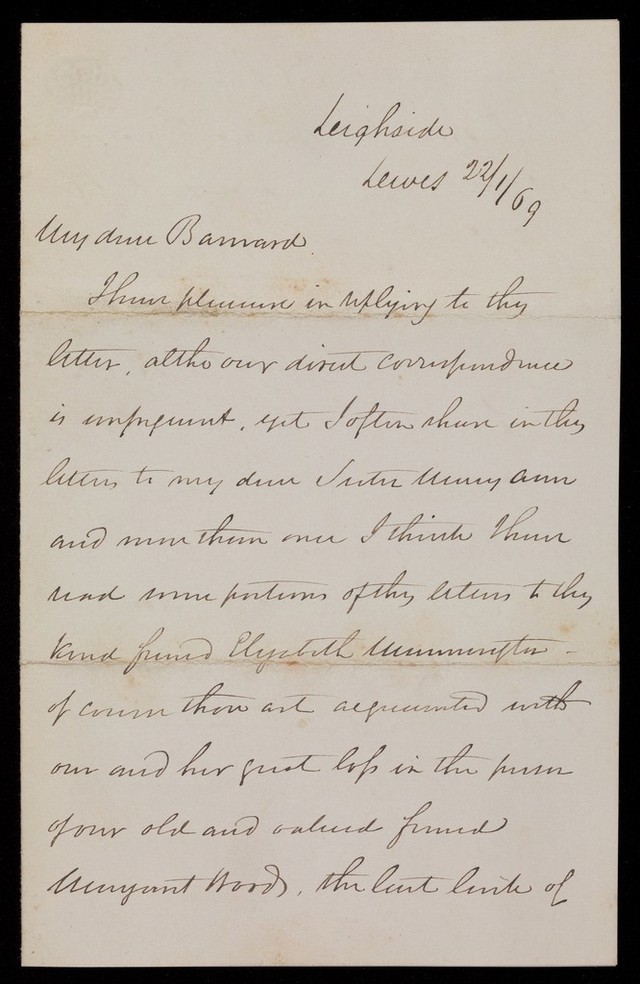 Leighside
Lewes 22/1/69
My dear Barnard
I have pleasure in replying to thy
letter, altho our direct correspondence
is infrequent, yet I often share in thy
letters to my dear Sister Mary Ann
and more than once I think I have
read some portions of thy letters to thy
kind friend Elizabeth
of course thou art acquainted with
our and her great loss in the person
of our old and valued friend
Margaret Woods, the last link of